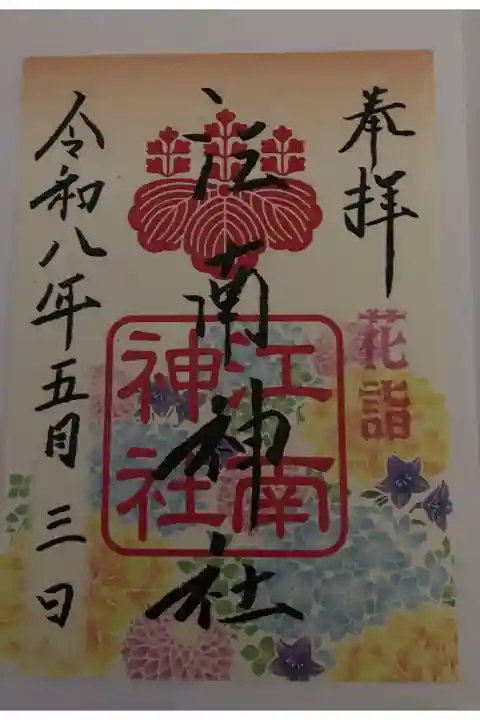 奉拝
花詣
江南神社
江南神社
令和八年五月三日